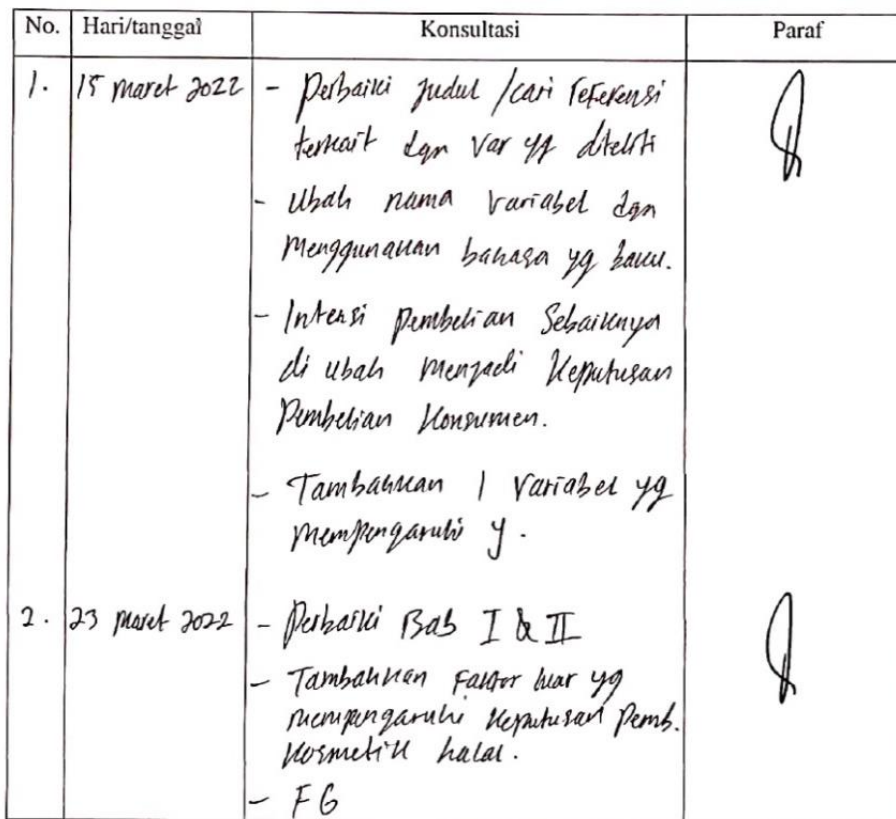 No. Hari/tanggal Konsultasi Paraf
1. 15 Maret 2022 - Perbaiki judul /cari referensi
terkait dgn Var yg diteliti
- Ubah nama variabel dgn
menggunakan bahasa yg baku.
- Intensi Pembelian Sebaiknya
di ubah menjadi Keputusan
Pembelian Konsumen.
- Tambahkan 1 Variabel yg
mempengaruhi y.
2. 23 Maret 2022 - Perbaiki Bab I & II
- Tambahkan Faktor luar yg
mempengaruhi Keputusan Pemb.
Kosmetik halal.
- FG